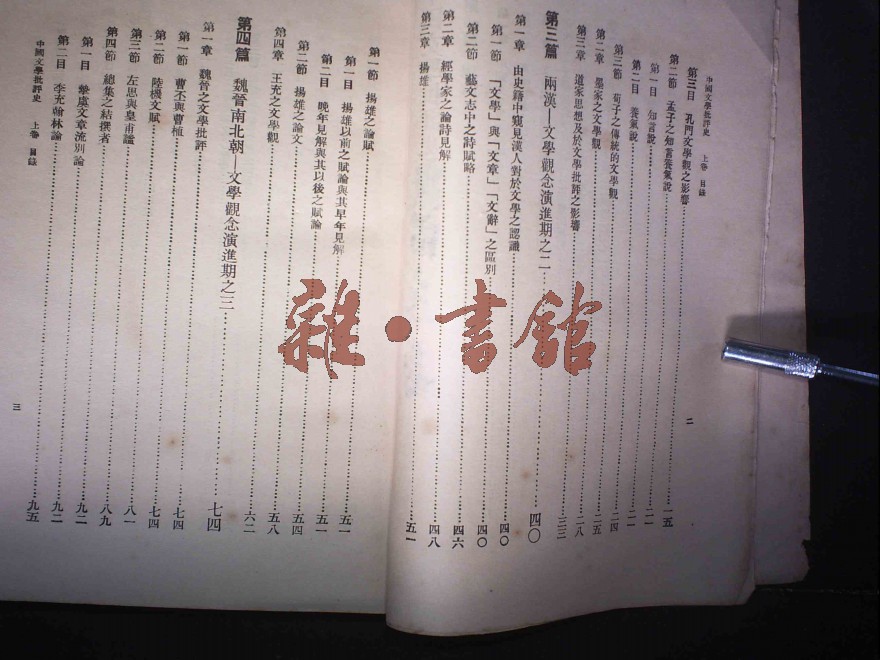 中國文學批評史　上卷　目錄
第三目　孔門文學觀之影響……一五
第二節　孟子之知言養氣說……二一
第一目　知言說……二一
第二目　養氣說……二四
第三節　荀子之傳統的文學觀……二五
第二章　墨家之文學觀……二八
第三章　道家思想及於文學批評之影響……三三
第三篇　兩漢—文學觀念演進期之二……四〇
第一章　由史籍中窺見漢人對於文學之認識……四〇
第一節　「文學」與「文章」「文辭」之區別……四〇
第二節　藝文志中之詩賦略……四六
第二章　經學家之論詩見解……四八
第三章　揚雄……五一
二
第一節　揚雄之論賦……五一
第一目　揚雄以前之賦論與其早年見解……五一
第二目　晚年見解與其以後之賦論……五四
第二節　揚雄之論文……五八
第四章　王充之文學觀……六二
第四篇　魏晉南北朝—文學觀念演進期之三……七四
第一章　魏晉之文學批評……七四
第一節　曹丕與曹植……七四
第二節　陸機文賦……八一
第三節　左思與皇甫謐……八九
第四節　總集之結撰者……九二
第一目　摯虞文章流別論……九二
第二目　李充翰林論……九五
中國文學批評史　上卷　目錄
三
雜·書館